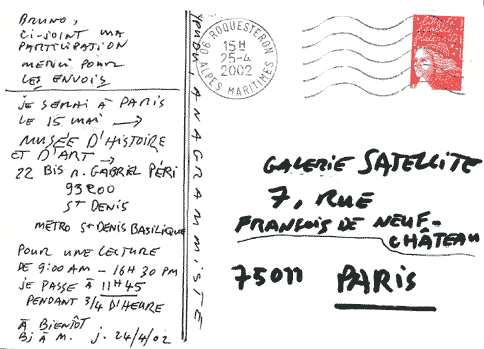 BRUNO,
CI-JOINT MA
PARTICIPATION
MERCI POUR
LES ENVOIS
JE SERAI À PARIS
LE 15 MAI →
MUSÉE D'HISTOIRE
ET D'ART →
22 BIS R. GABRIEL PÉRI
93200
ST DENIS
METRO ST DENIS BASILIQUE
POUR UNE LECTURE
DE 9:00 AM - 16H30 PM
JE PASSE À 11H45
PENDANT 3/4 D'HEURE
À BIENTÔT
BJ À M. J. 24/4/02
ANAGRAMMISTE
06 ROQUESTERON
15H
25-4
2002
ALPES MARITIMES
GALERIE SATELLITE
7, RUE
FRANÇOIS DE NEUF-
CHÂTEAU
75011 PARIS